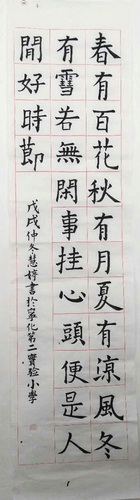 春有百花秋有月夏有涼風冬
有雪若無閑事挂心頭便是人
間好時節
戊戌仲冬慧婷書於寧化第二實验小學